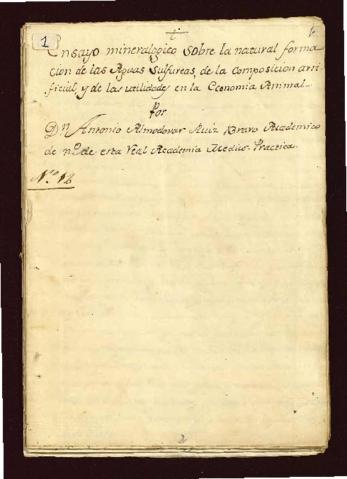 1
Ensayo mineralogico sobre la natural forma
cion de las Aguas Sulfureas, de la composicion arti
ficial y de las utilidades en la Economia Animal
Por
Dn Antonio Almodovar Ruiz Bravo Academico
de no de esta Real Academia Medico Practica
No 12
2